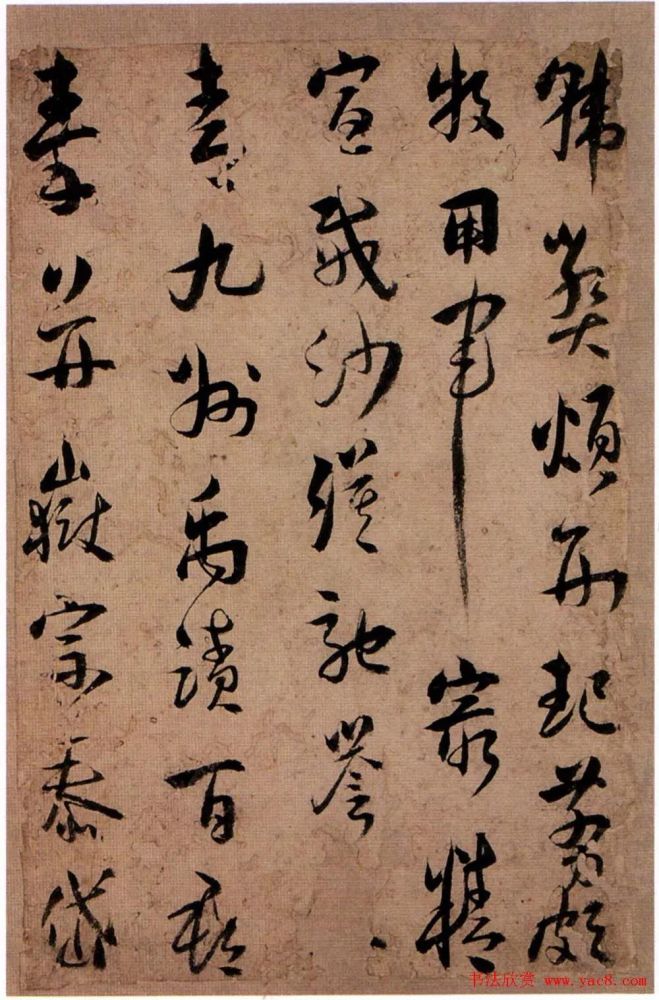 韓弊煩刑起翦頗
牧用軍最精
宣威沙漠馳譽
青九州禹蹟百郡
秦并嶽宗泰岱
书法欣赏 www.yac8.com